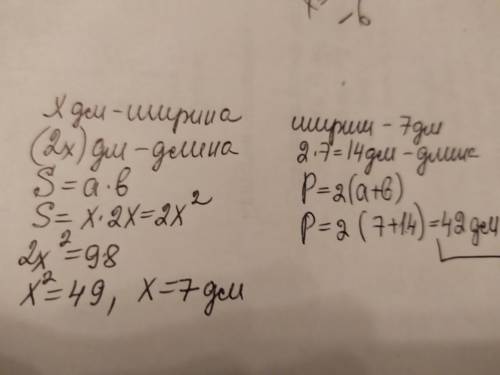 x дм - ширина
(2x) дм - длина
S = a · b
S = x · 2x = 2x²
2x² = 98
x² = 49, x = 7 дм
ширин - 7 дм
2 · 7 = 14 дм - длина
P = 2(a+b)
P = 2 (7+14) = 42 дм